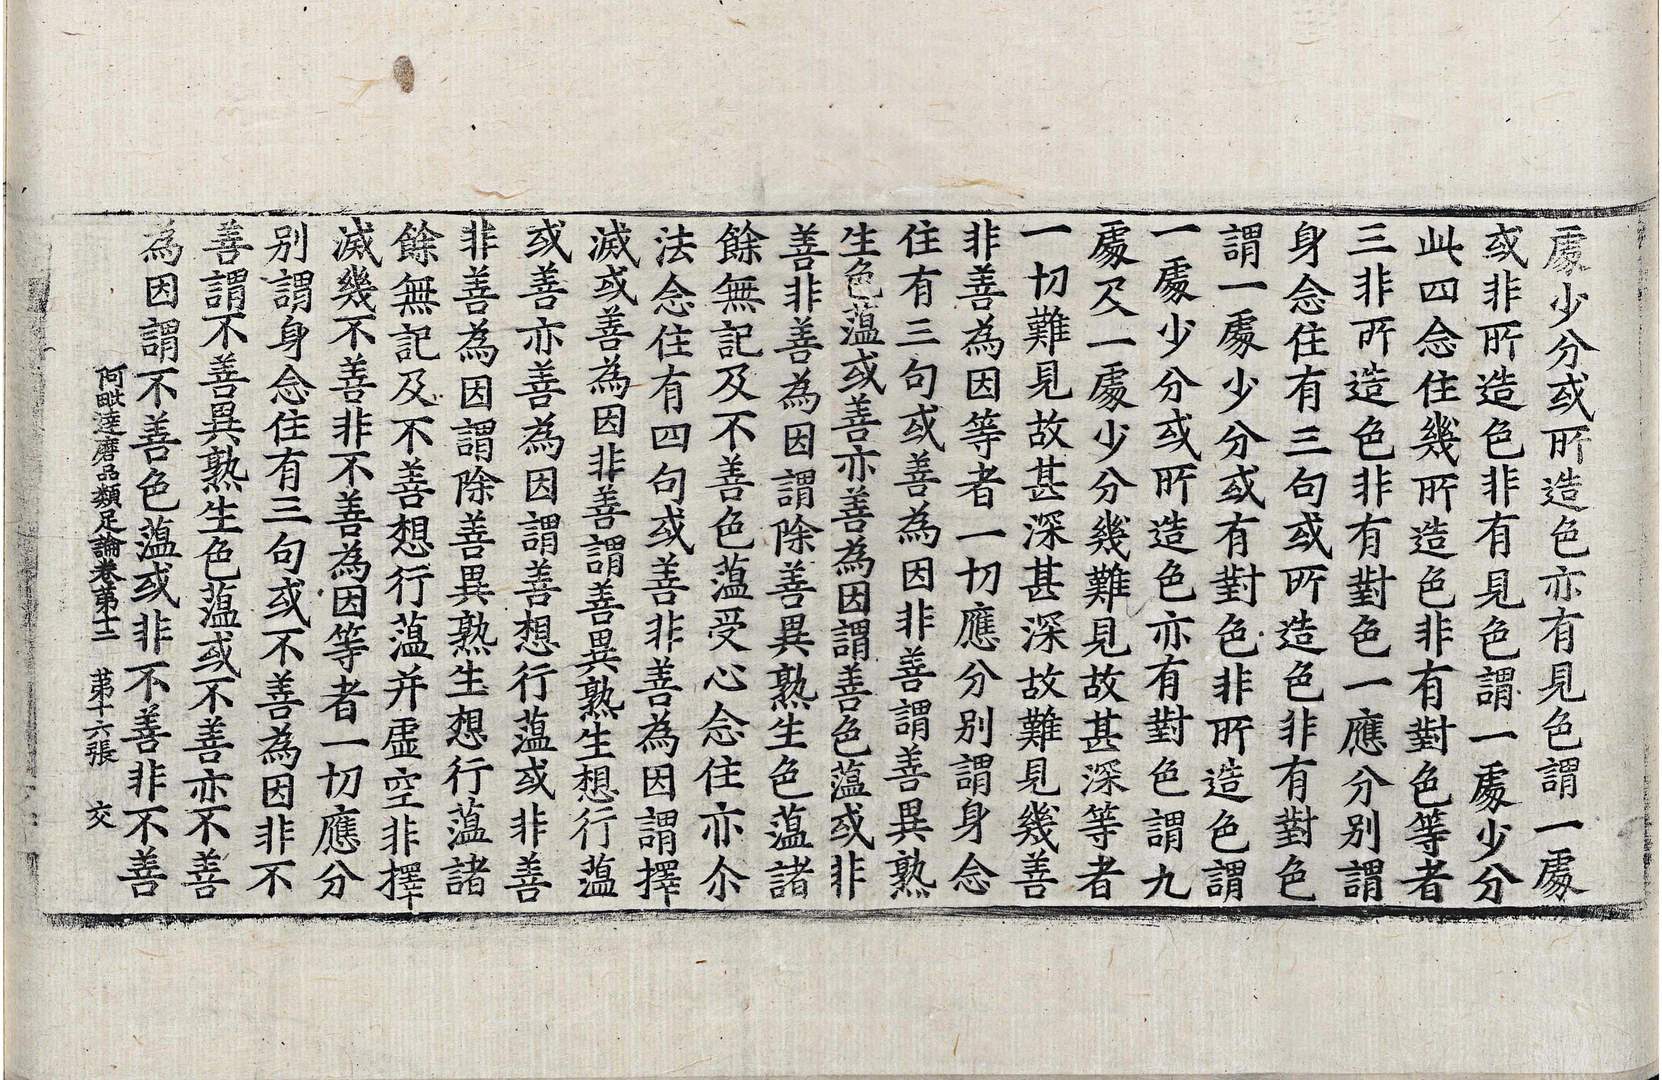 處少分或所造色亦有見色謂一處
或非所造色非有見色謂一處少分
此四念住幾所造色非有對色等者
三非所造色非有對色一應分別謂
身念住有三句或所造色非有對色
謂一處少分或有對色非所造色謂
一處少分或所造色亦有對色謂九
處及一處少分幾難見故甚深等者
一切難見故甚深甚深故難見幾善
非善為因等者一切應分別謂身念
住有三句或善為因非善謂善異熟
生色蕰或善亦善為因謂善色蕰或非
善非善為因謂除善異熟生色蕰諸
餘無記及不善色蕰受心念住亦尒
法念住有四句或善非善為因謂擇
滅或善為因非善謂善異熟生想行蕰
或善亦善為因謂善想行蕰或非善
非善為因謂除善異熟生想行蕰諸
餘無記及不善想行蕰并虛空非擇
滅幾不善非不善為因等者一切應分
別謂身念住有三句或不善為因非不
善謂不善異熟生色蕰或不善亦不善
為因謂不善色蕰或非不善非不善
阿毗達磨品類足論卷第十二　第十六張　交